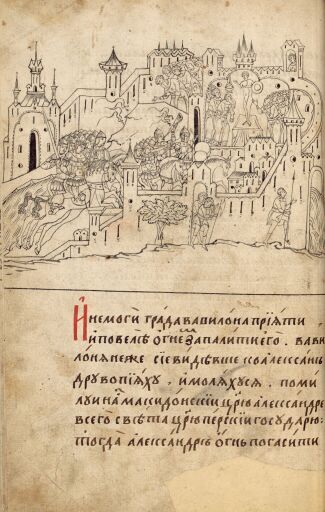 И немоги града вавилона прїѧти
и повелѣ огнемъ запалити его . вави
лонѧне же сїе видѣвше ко алексан
дру вопїѧху . и молѧхусѧ . поми
луи на макидонскїи црю алеѯандре
всего свѣта црю перскїи государю :
тогда алеѯандръ огнь погасити